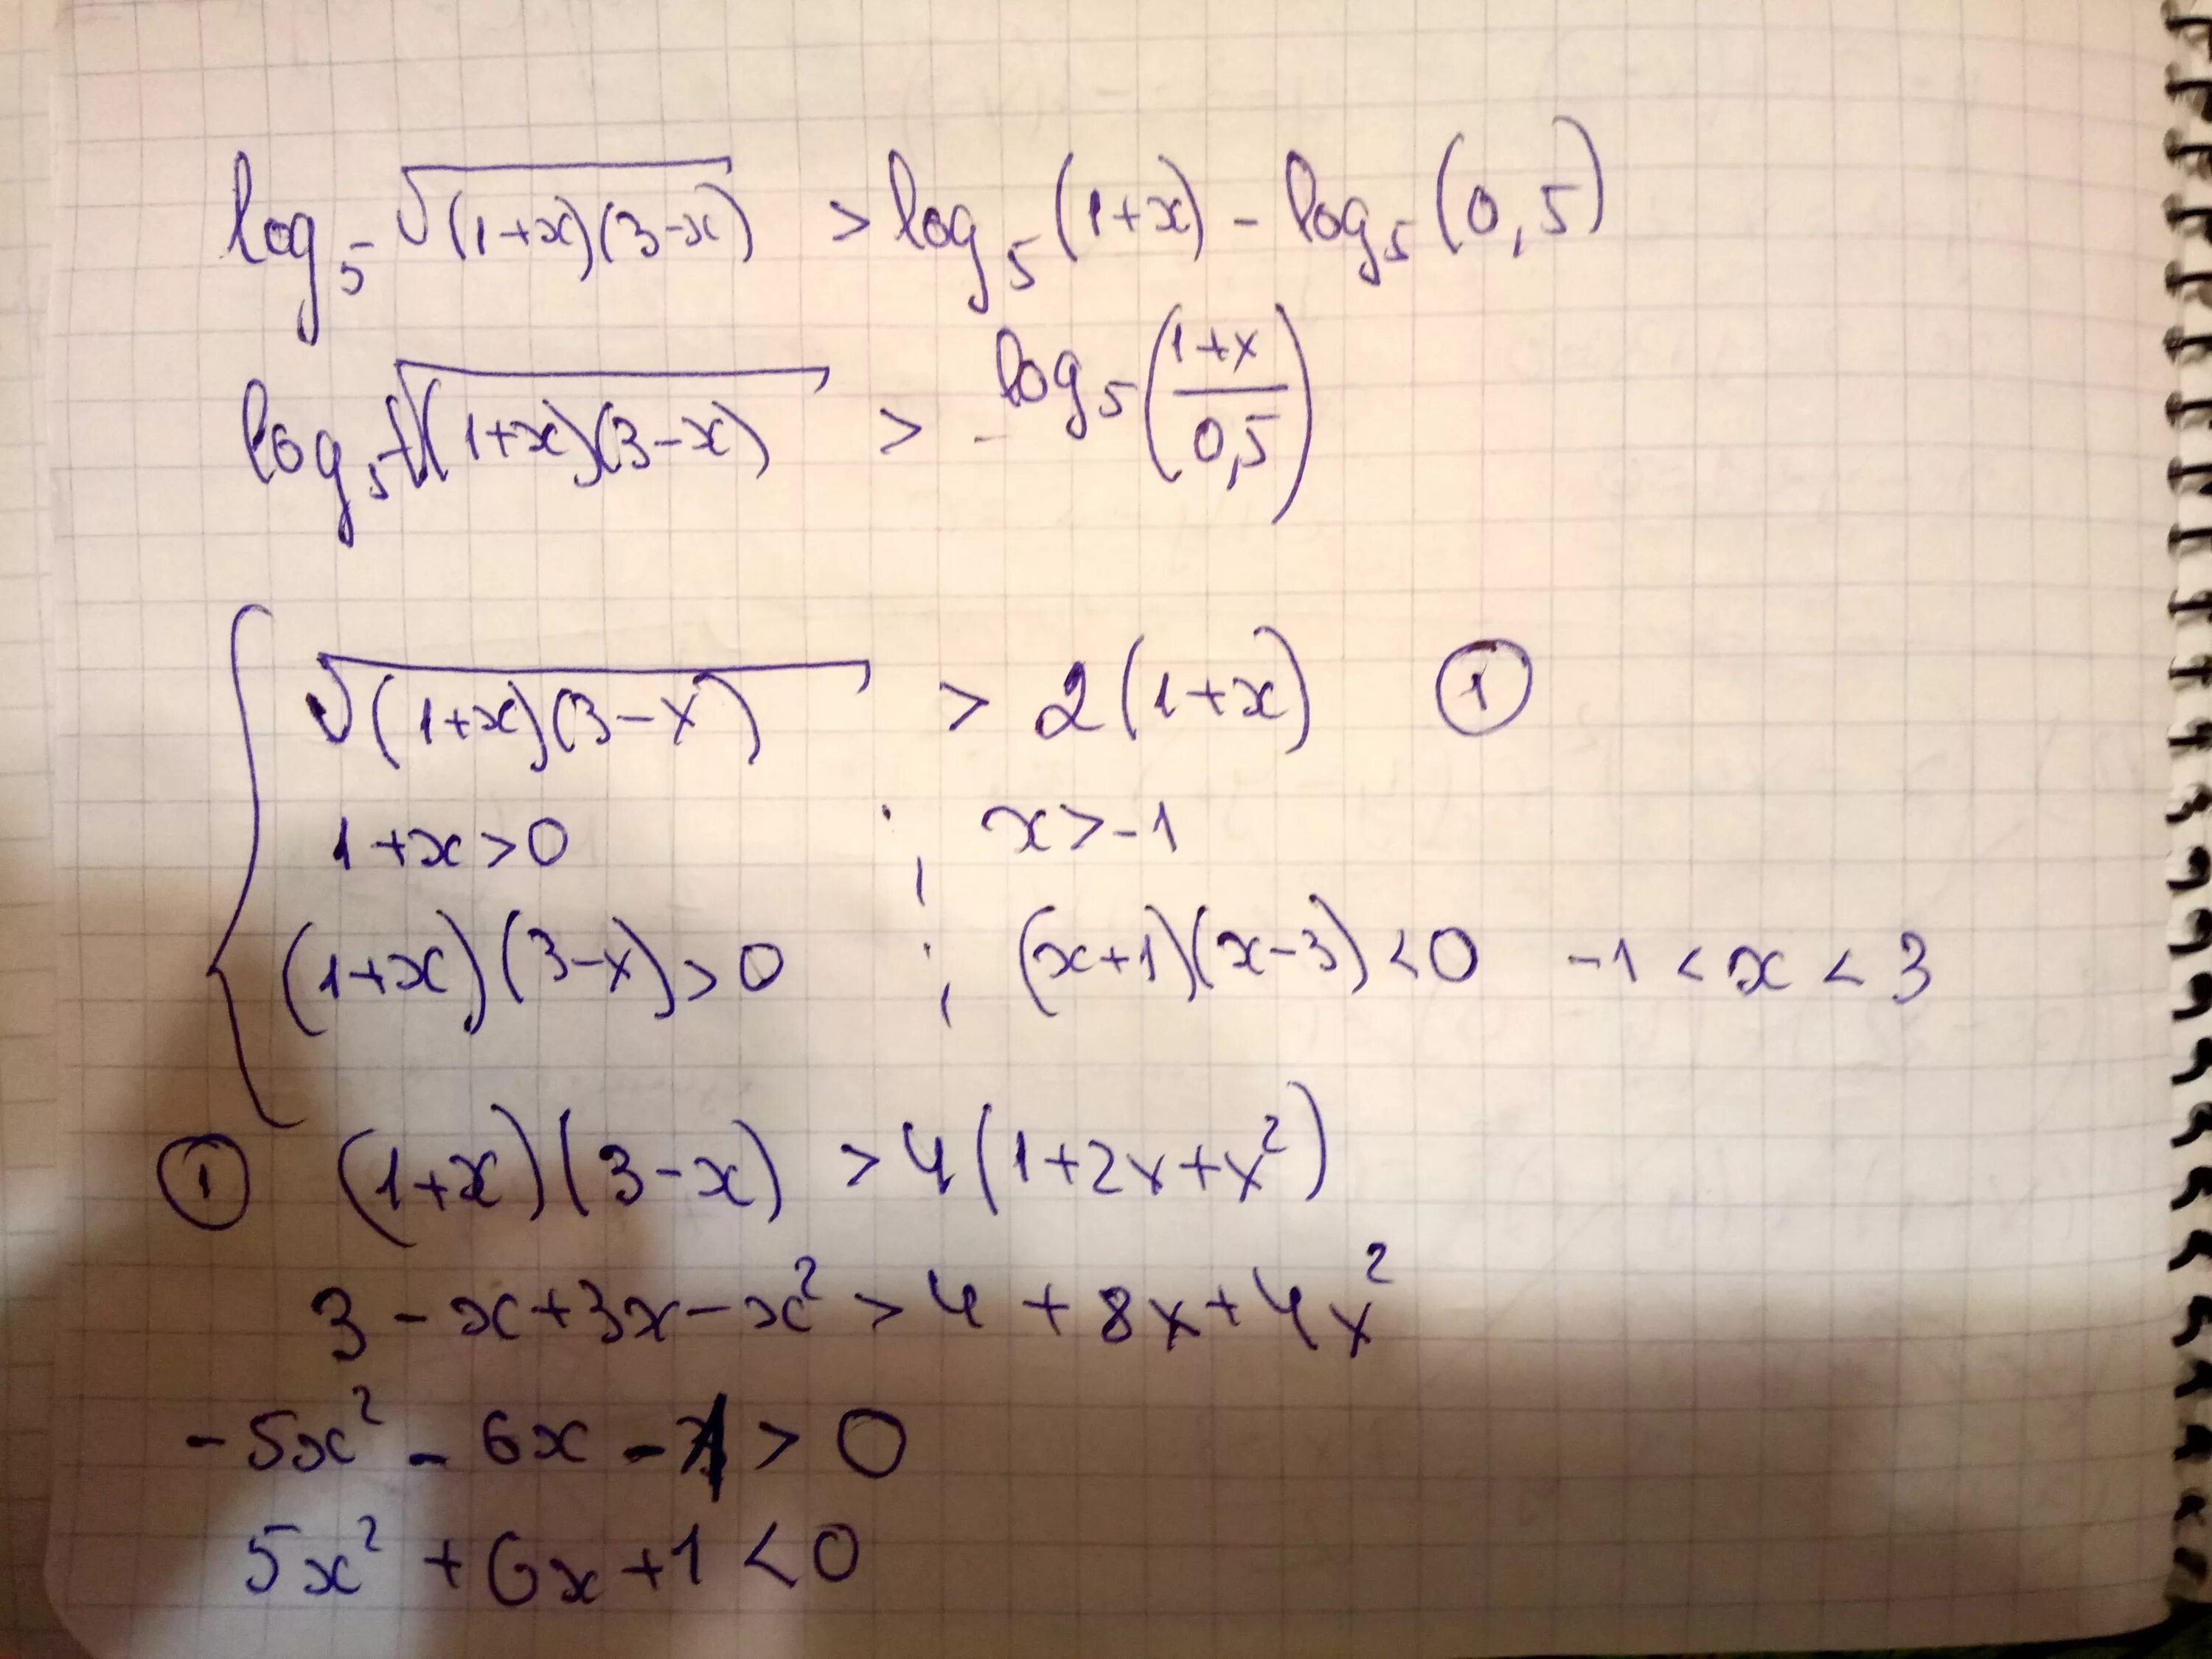 log₅√((1+x)(3-x)) > log₅(1+x) - log₅(0,5)
log₅√((1+x)(3-x)) > log₅((1+x)/0,5)
√((1+x)(3-x)) > 2(1+x) ①
1+x>0 ; x>-1
(1+x)(3-x)>0 ; (x+1)(x-3)<0 -1<x<3
① (1+x)(3-x) > 4(1+2x+x²)
3-x+3x-x² > 4+8x+4x²
-5x²-6x-1>0
5x²+6x+1<0